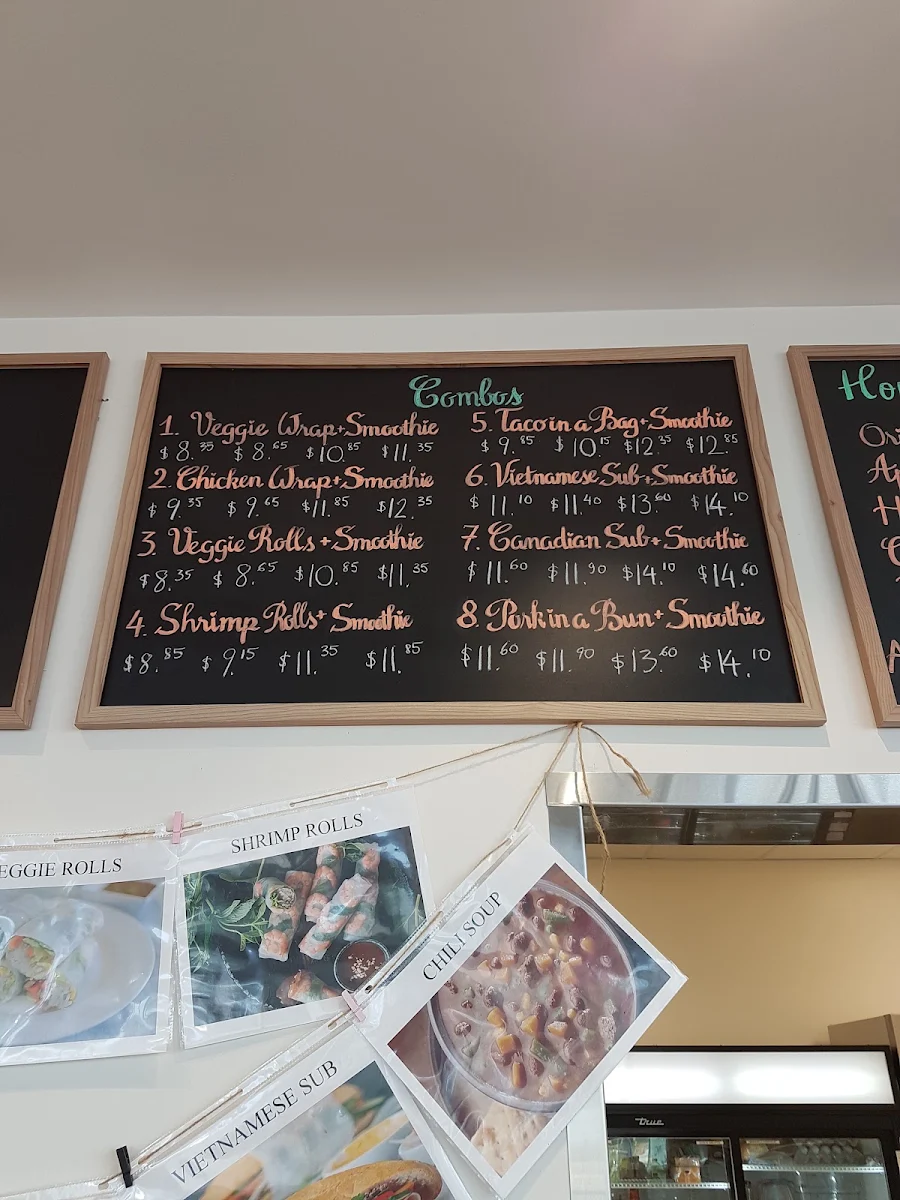 Combos
1. Veggie Wrap + Smoothie
$8.35 $8.65 $10.85 $11.35
2. Chicken Wrap + Smoothie
$9.35 $9.65 $11.85 $12.35
3. Veggie Rolls + Smoothie
$8.35 $8.65 $10.85 $11.35
4. Shrimp Rolls + Smoothie
$8.85 $9.15 $11.35 $11.85
5. Taco in a Bag + Smoothie
$9.85 $10.15 $12.35 $12.85
6. Vietnamese Sub + Smoothie
$11.10 $11.40 $13.60 $14.10
7. Canadian Sub + Smoothie
$11.60 $11.90 $14.10 $14.60
8. Pork in a Bun + Smoothie
$11.60 $11.90 $13.60 $14.10
EGGIE ROLLS
SHRIMP ROLLS
CHILI SOUP
VIETNAMESE SUB
True